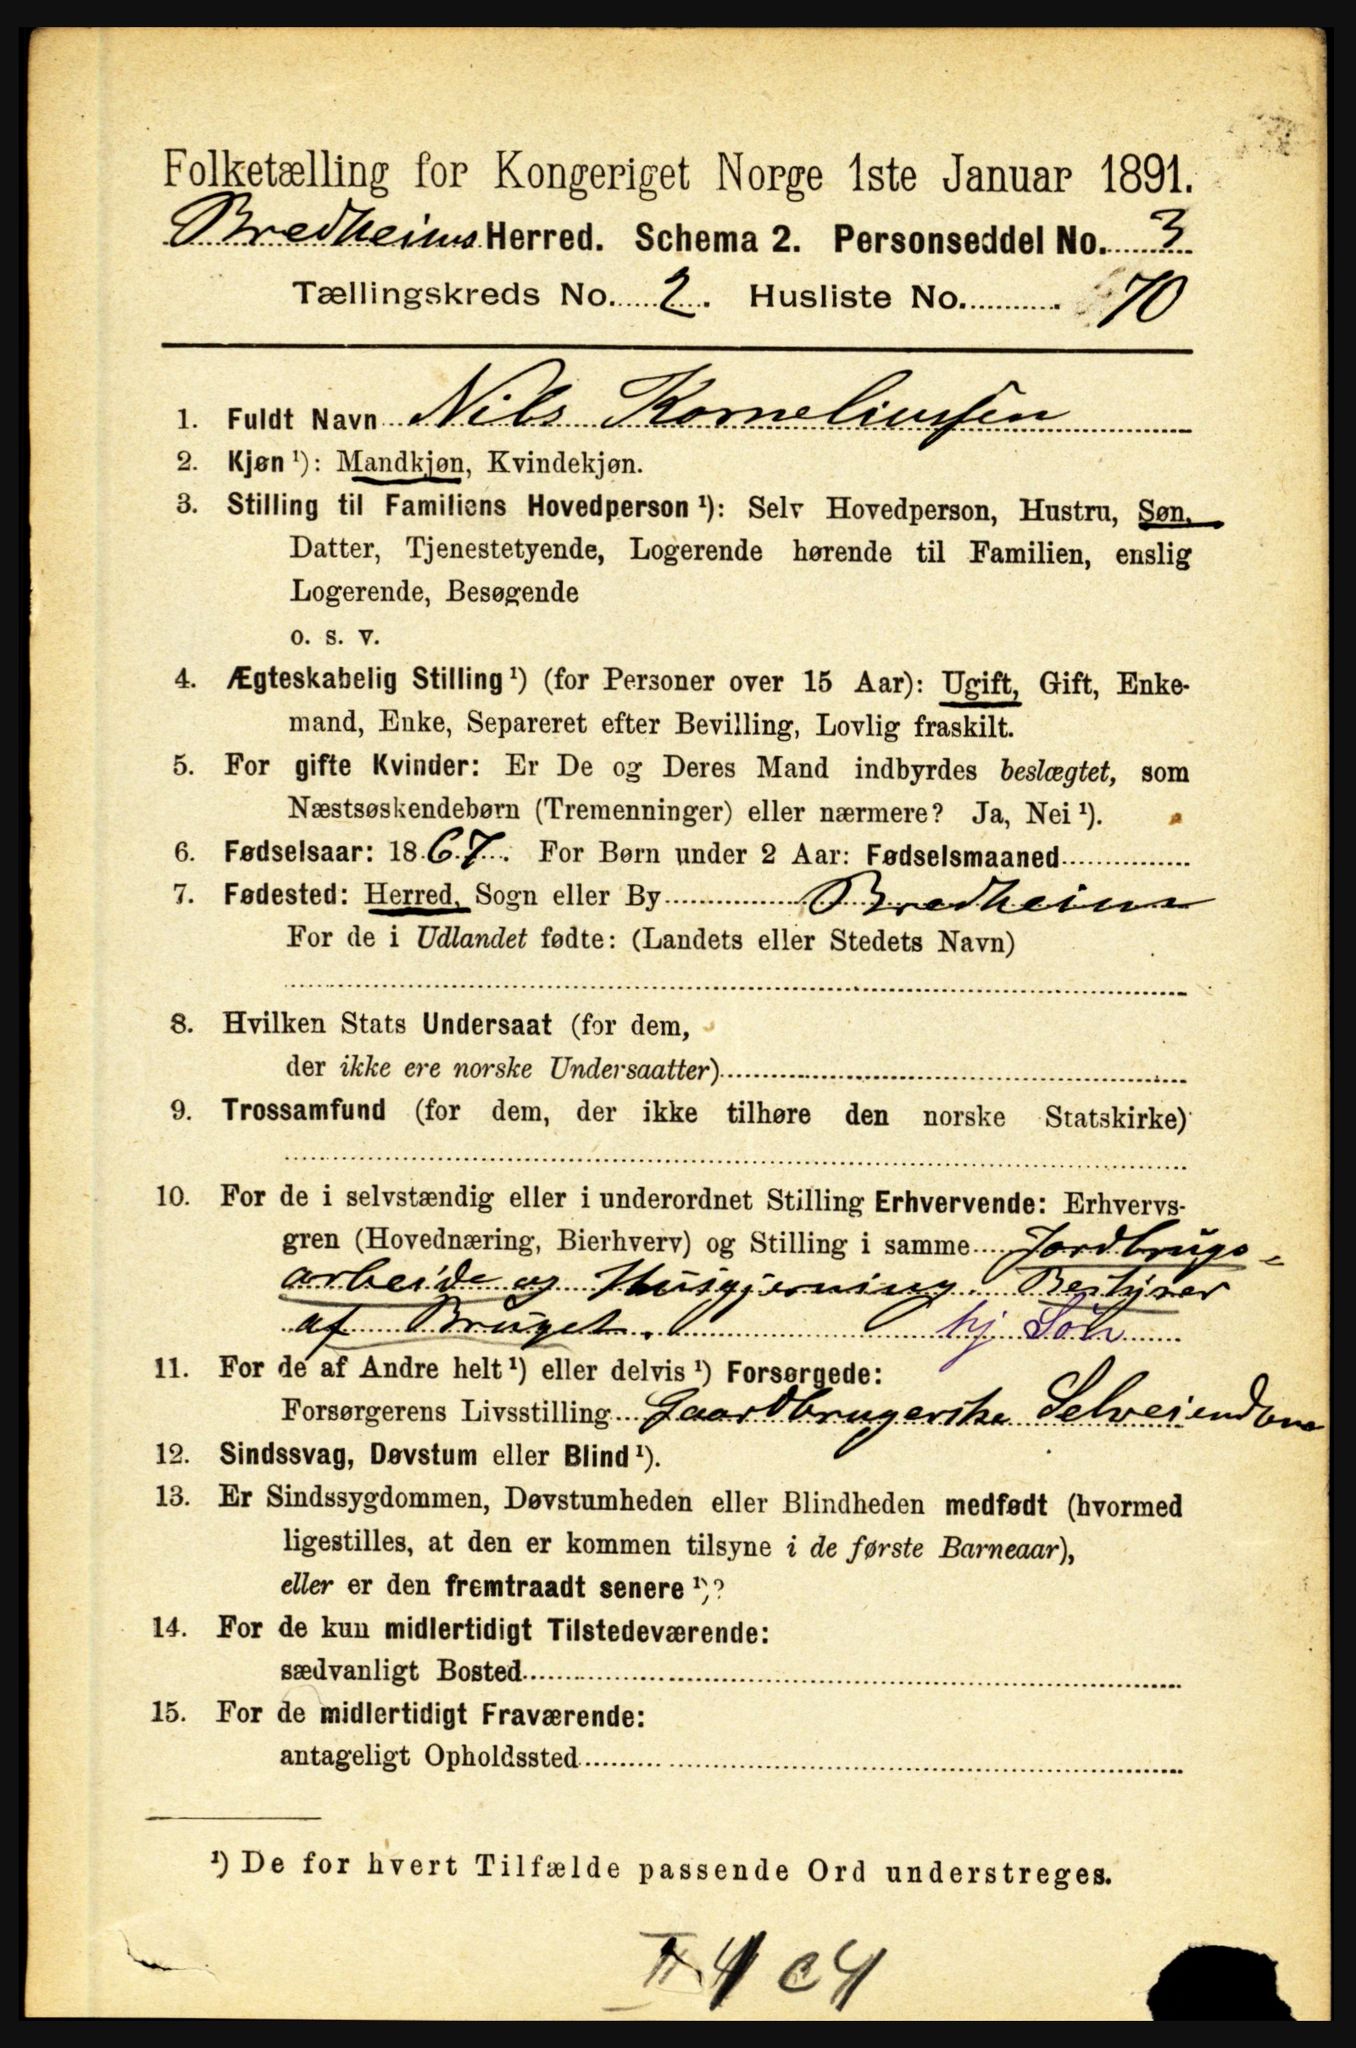 Folketælling for Kongeriget Norge 1ste Januar 1891.
Bredheims Herred. Schema 2. Personseddel No. 3
Tællingskreds No. 2. Husliste No. 70
1. Fuldt Navn Nils Korneliussen
2. Kjøn ¹): Mandkjøn, Kvindekjøn.
3. Stilling til Familiens Hovedperson ¹): Selv Hovedperson, Hustru, Søn,
Datter, Tjenestetyende, Logerende hørende til Familien, enslig
Logerende, Besøgende
o. s. v.
4. Ægteskabelig Stilling ¹) (for Personer over 15 Aar): Ugift, Gift, Enke-
mand, Enke, Separeret efter Bevilling, Lovlig fraskilt.
5. For gifte Kvinder: Er De og Deres Mand indbyrdes beslægtet, som
Næstsøskendebørn (Tremenninger) eller nærmere? Ja, Nei ¹).
6. Fødselsaar: 1867. For Børn under 2 Aar: Fødselsmaaned
7. Fødested: Herred, Sogn eller By Bredheim
For de i Udlandet fødte: (Landets eller Stedets Navn)
8. Hvilken Stats Undersaat (for dem,
der ikke ere norske Undersaatter)
9. Trossamfund (for dem, der ikke tilhøre den norske Statskirke)
10. For de i selvstændig eller i underordnet Stilling Erhvervende: Erhvervs-
gren (Hovednæring, Bierhverv) og Stilling i samme Jordbrugs-
arbeide og Husgjerning. Bestyrer
af Bruget. hj Søn
11. For de af Andre helt ¹) eller delvis ¹) Forsørgede:
Forsørgerens Livsstilling Gaardbrugerske Selveiendone
12. Sindssvag, Døvstum eller Blind ¹).
13. Er Sindssygdommen, Døvstumheden eller Blindheden medfødt (hvormed
ligestilles, at den er kommen tilsyne i de første Barneaar),
eller er den fremtraadt senere ¹)?
14. For de kun midlertidigt Tilstedeværende:
sædvanligt Bosted
15. For de midlertidigt Fraværende:
antageligt Opholdssted
¹) De for hvert Tilfælde passende Ord understreges.